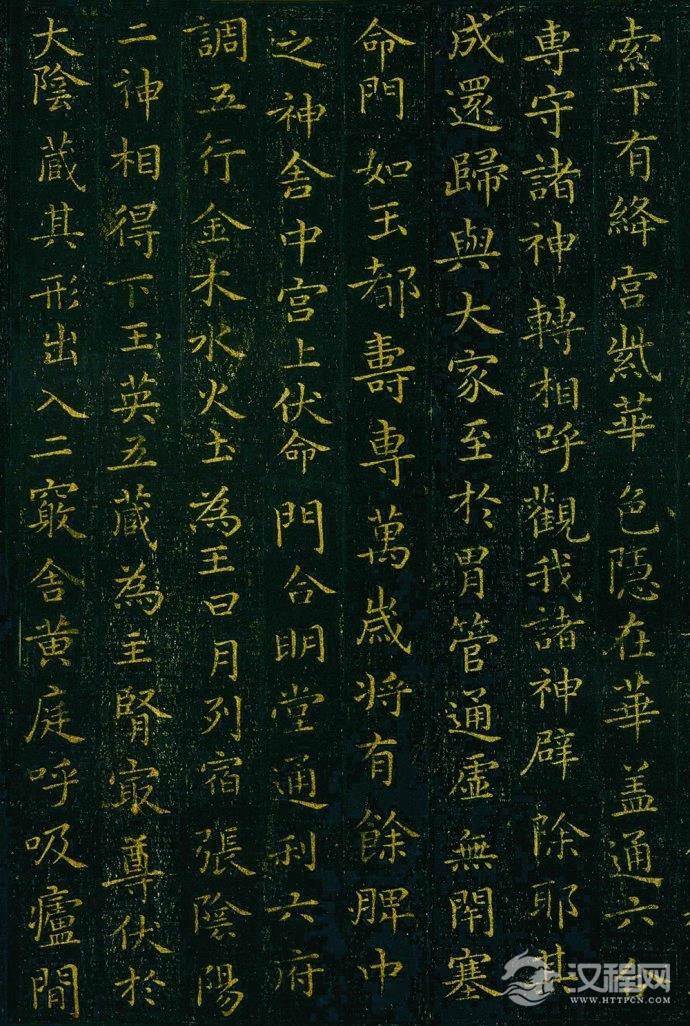 索下有絳宮紫華色隱在華盖通六合
專守諸神轉相呼觀我諸神辟除耶其
成還歸與大家至於胃管通虛無閇塞
命門如玉都壽專萬歲将有餘脾中
之神舍中宮上伏命門合明堂通利六府
調五行金木水火土為王日月列宿張陰陽
二神相得下玉英五藏為主腎冣尊伏於
大陰藏其形出入二竅舍黄庭呼吸廬間
汉程网
WWW.HTTPCN.COM